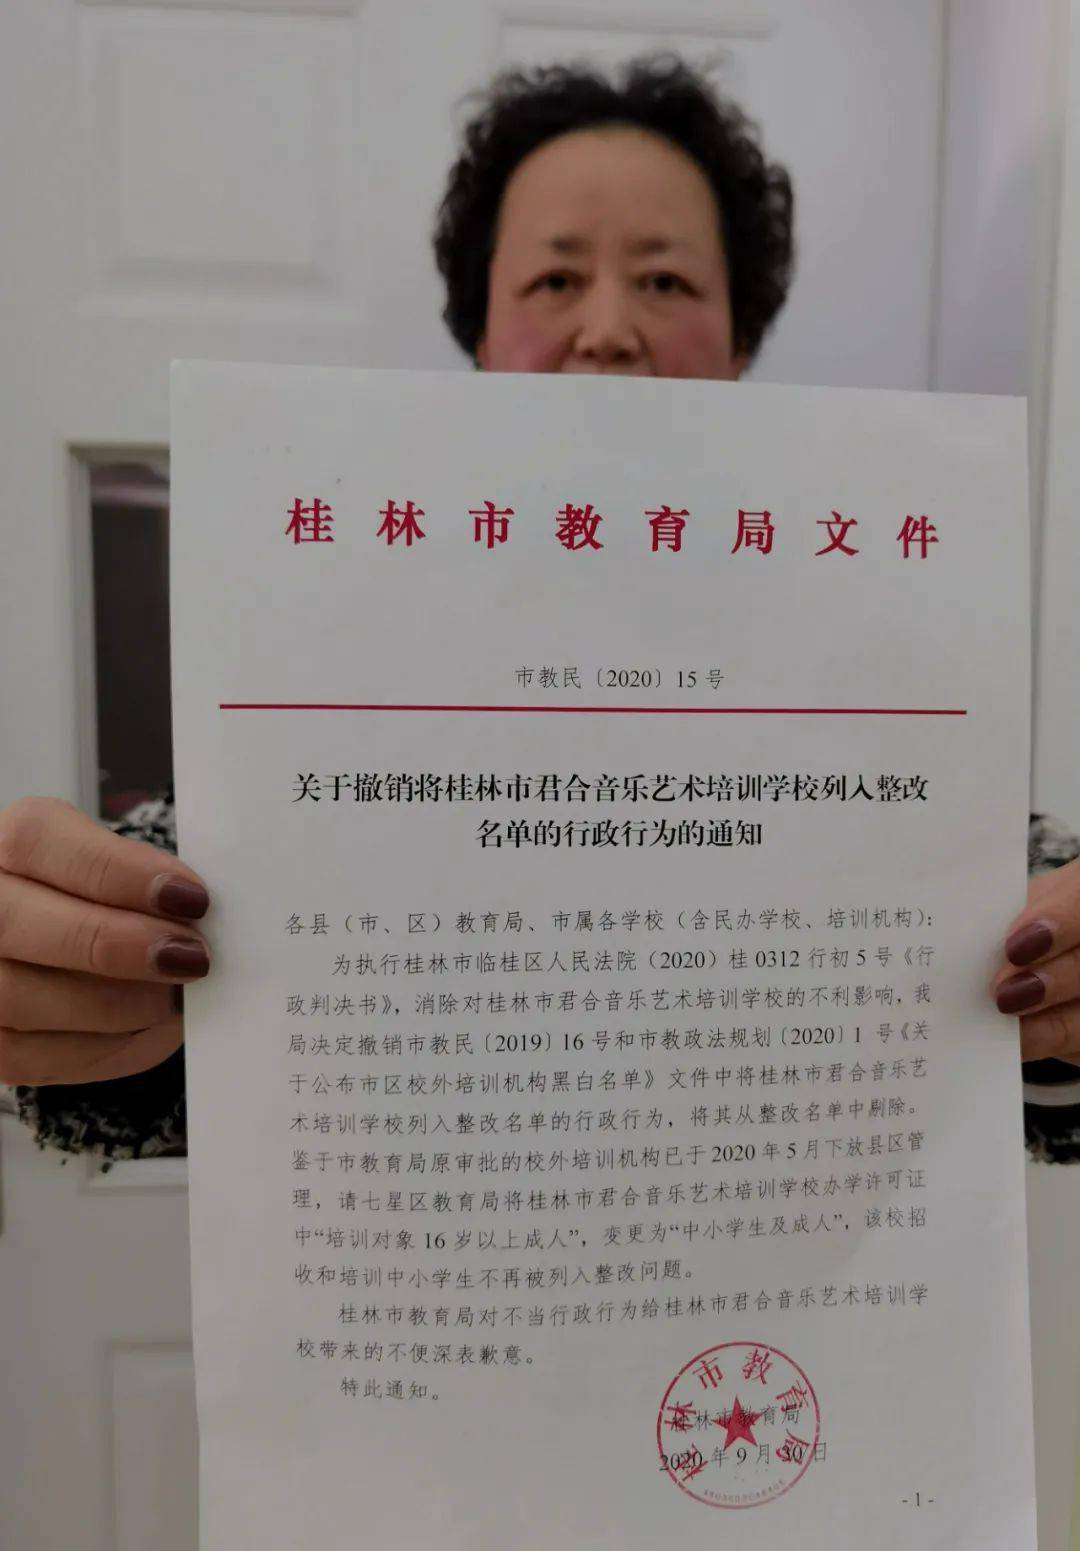 桂林市教育局文件
市教民〔2020〕15号
关于撤销将桂林市君合音乐艺术培训学校列入整改
名单的行政行为的通知
各县（市、区）教育局、市属各学校（含民办学校、培训机构）：
为执行桂林市临桂区人民法院（2020）桂0312行初5号《行
政判决书》，消除对桂林市君合音乐艺术培训学校的不利影响，我
局决定撤销市教民〔2019〕16号和市教政法规划〔2020〕1 号《关
于公布市区校外培训机构黑白名单》文件中将桂林市君合音乐艺
术培训学校列入整改名单的行政行为，将其从整改名单中剔除。
鉴于市教育局原审批的校外培训机构已于2020年5月下放县区管
理，请七星区教育局将桂林市君合音乐艺术培训学校办学许可证
中“培训对象16岁以上成人”，变更为“中小学生及成人”，该校招
收和培训中小学生不再被列入整改问题。
桂林市教育局对不当行政行为给桂林市君合音乐艺术培训学
校带来的不便深表歉意。
特此通知。
桂林市教育局
桂林市教育局
2020年9月30日
-1-